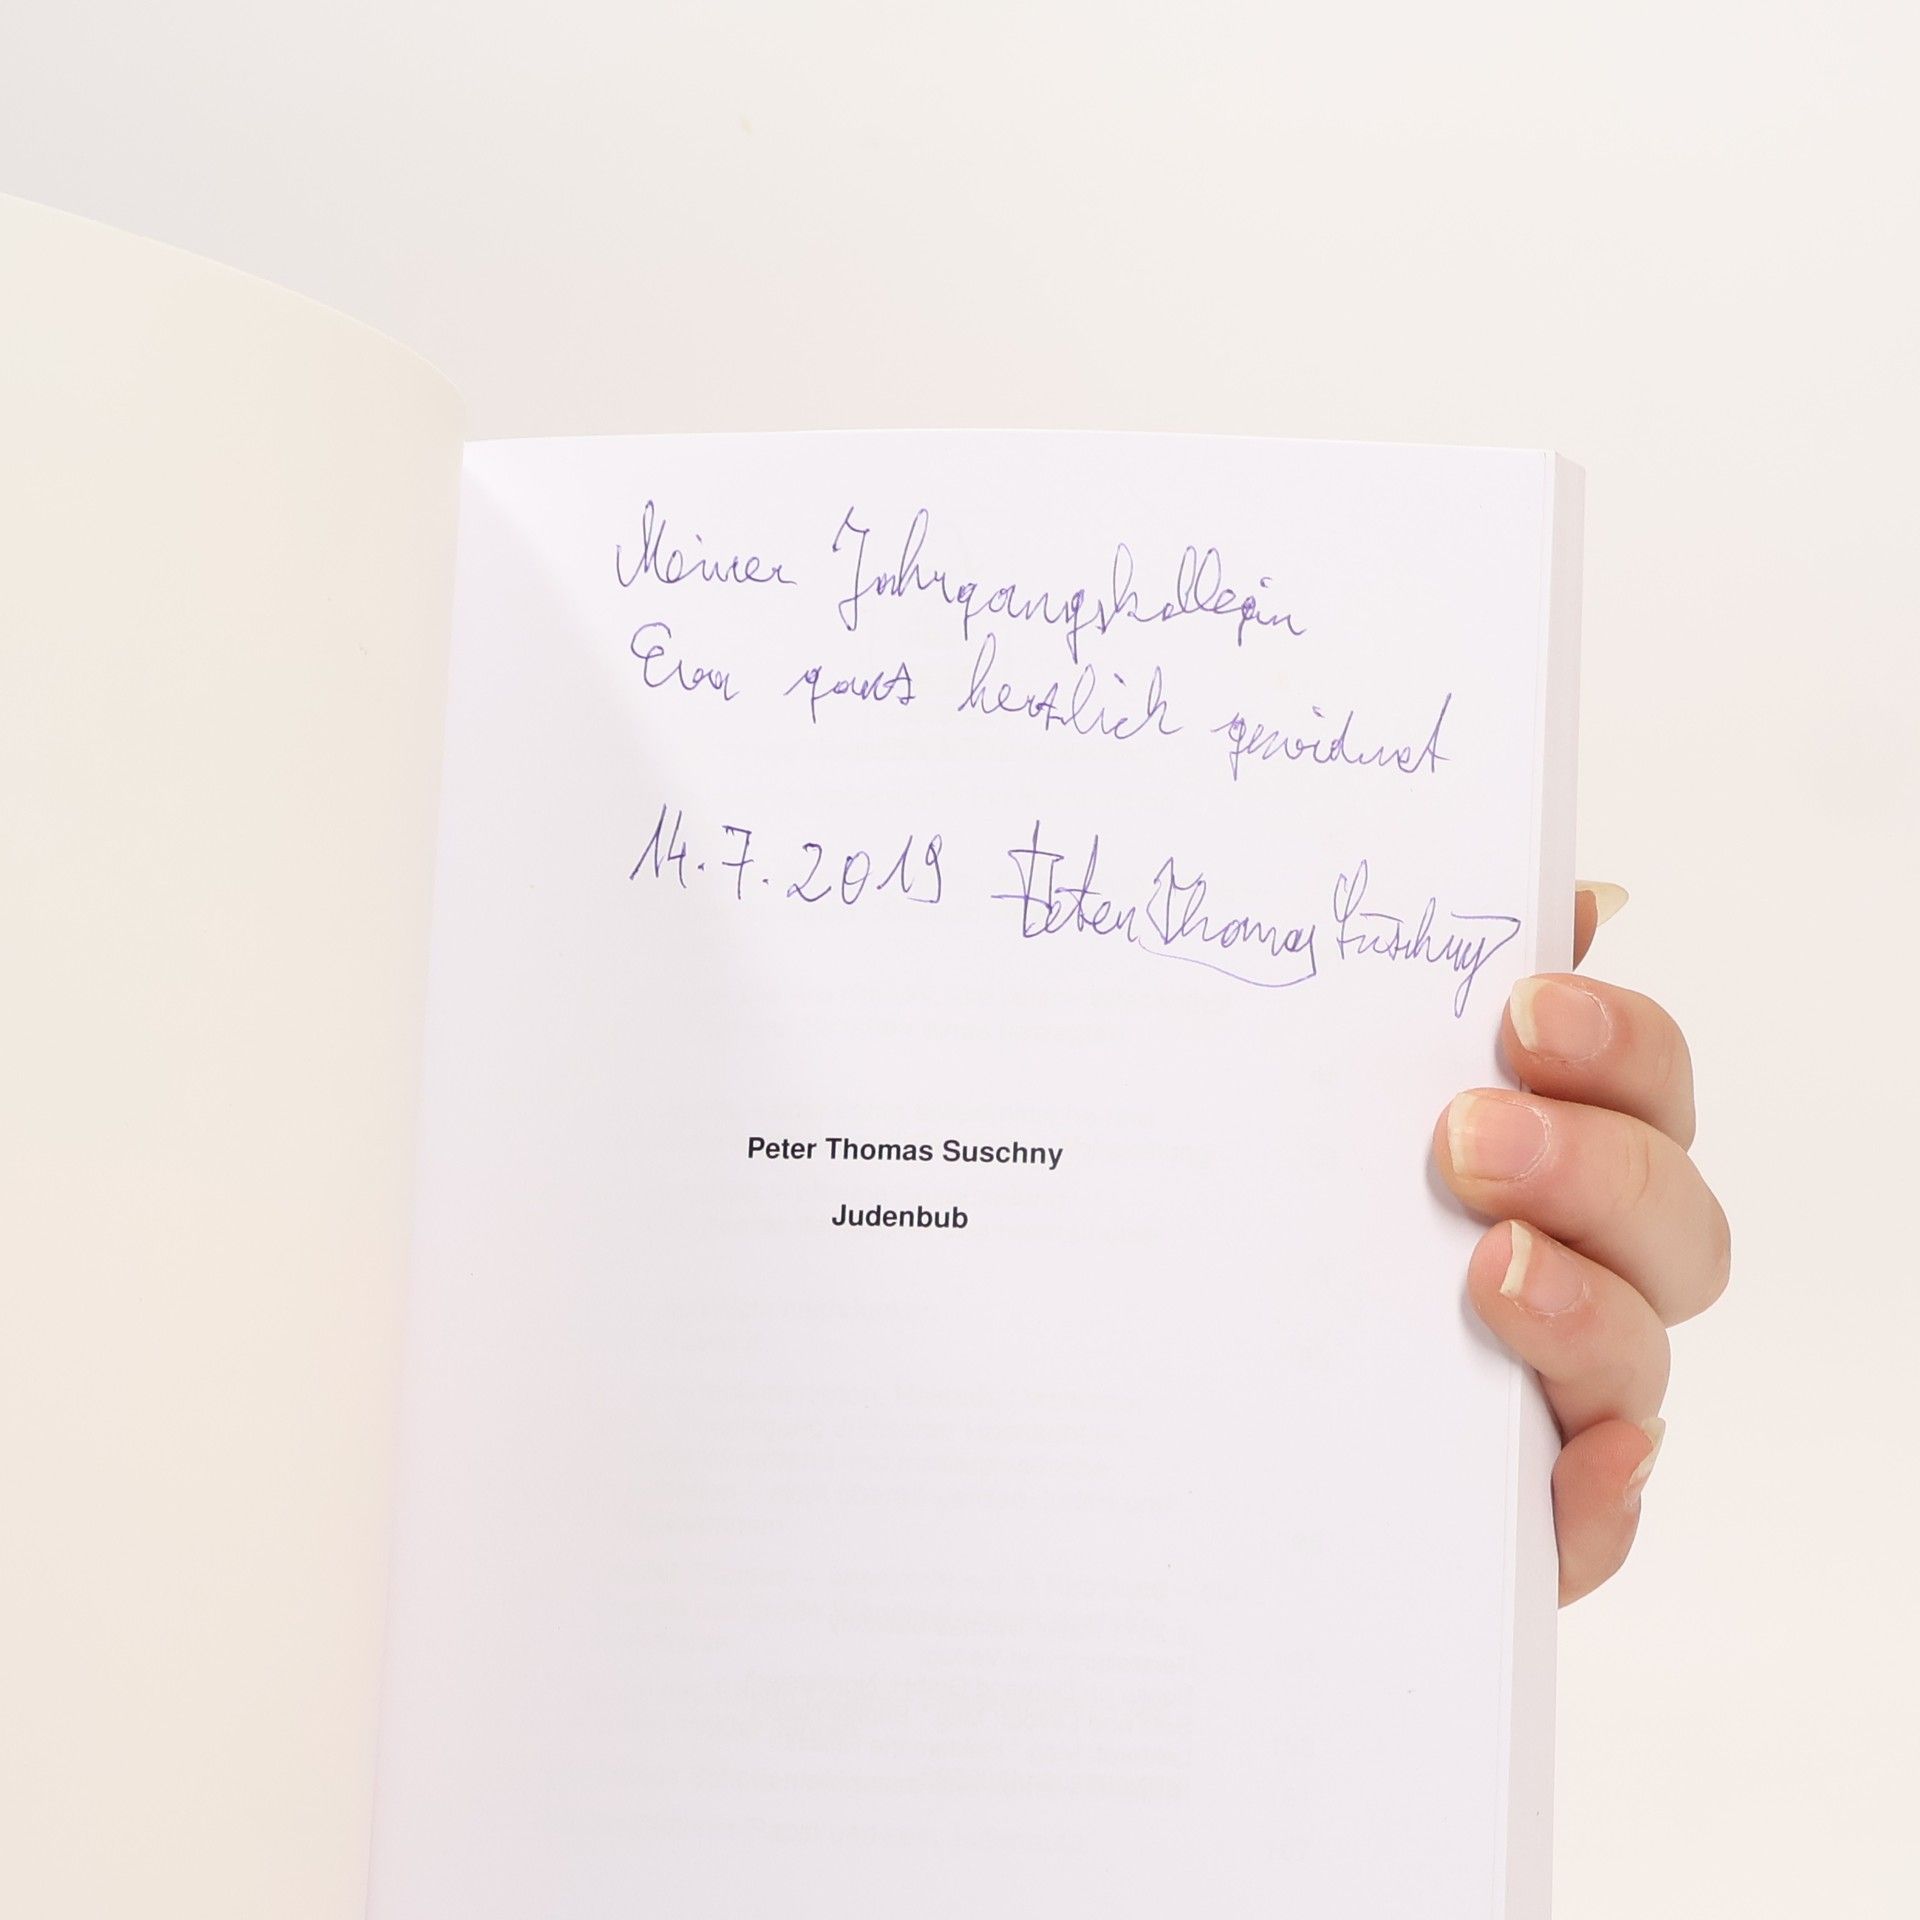 Meiner Jahrgangskollegin
Eva ganz herzlich gewidmet
14.7.2019 Peter Thomas Suschny
Peter Thomas Suschny
Judenbub